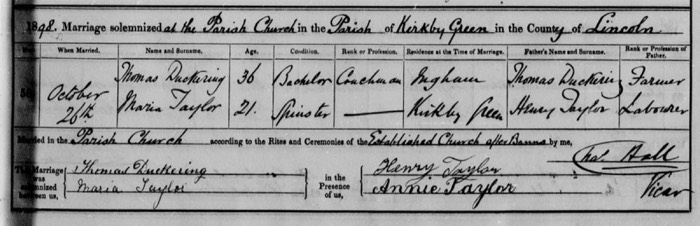 1898. Marriage solemnized at the Parish Church in the Parish of Kirkby Green in the County of Lincoln
When Married. Name and Surname. Age. Condition. Rank or Profession. Residence at the Time of Marriage. Father's Name and Surname. Rank or Profession of Father.
October 26th
Thomas Duckering 36 Bachelor Coachman Ingham Thomas Duckering Farmer
Maria Taylor 21. Spinster — Kirkby Green Henry Taylor Labourer
Married in the Parish Church according to the Rites and Ceremonies of the Established Church after Banns by me,
Chas. Hall
Vicar
This Marriage was solemnized between us,
Thomas Duckering
Maria Taylor
in the Presence of us,
Henry Taylor
Annie Taylor